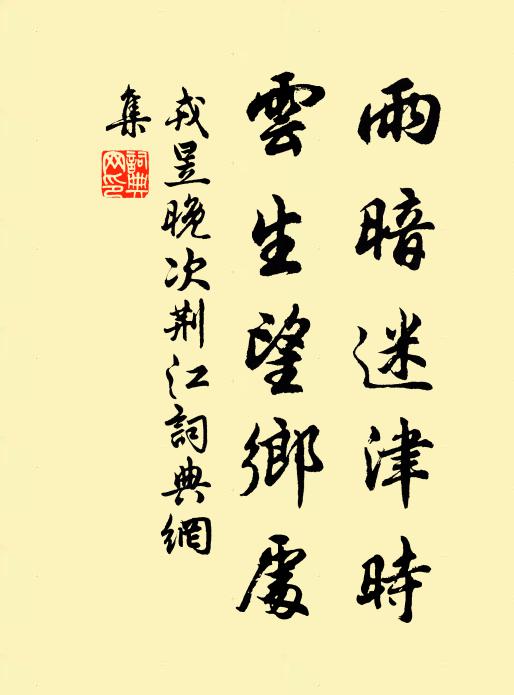 雨暗迷津時
雲生望鄉處
戎昱晚次荆江詞典網
集
詞典網印